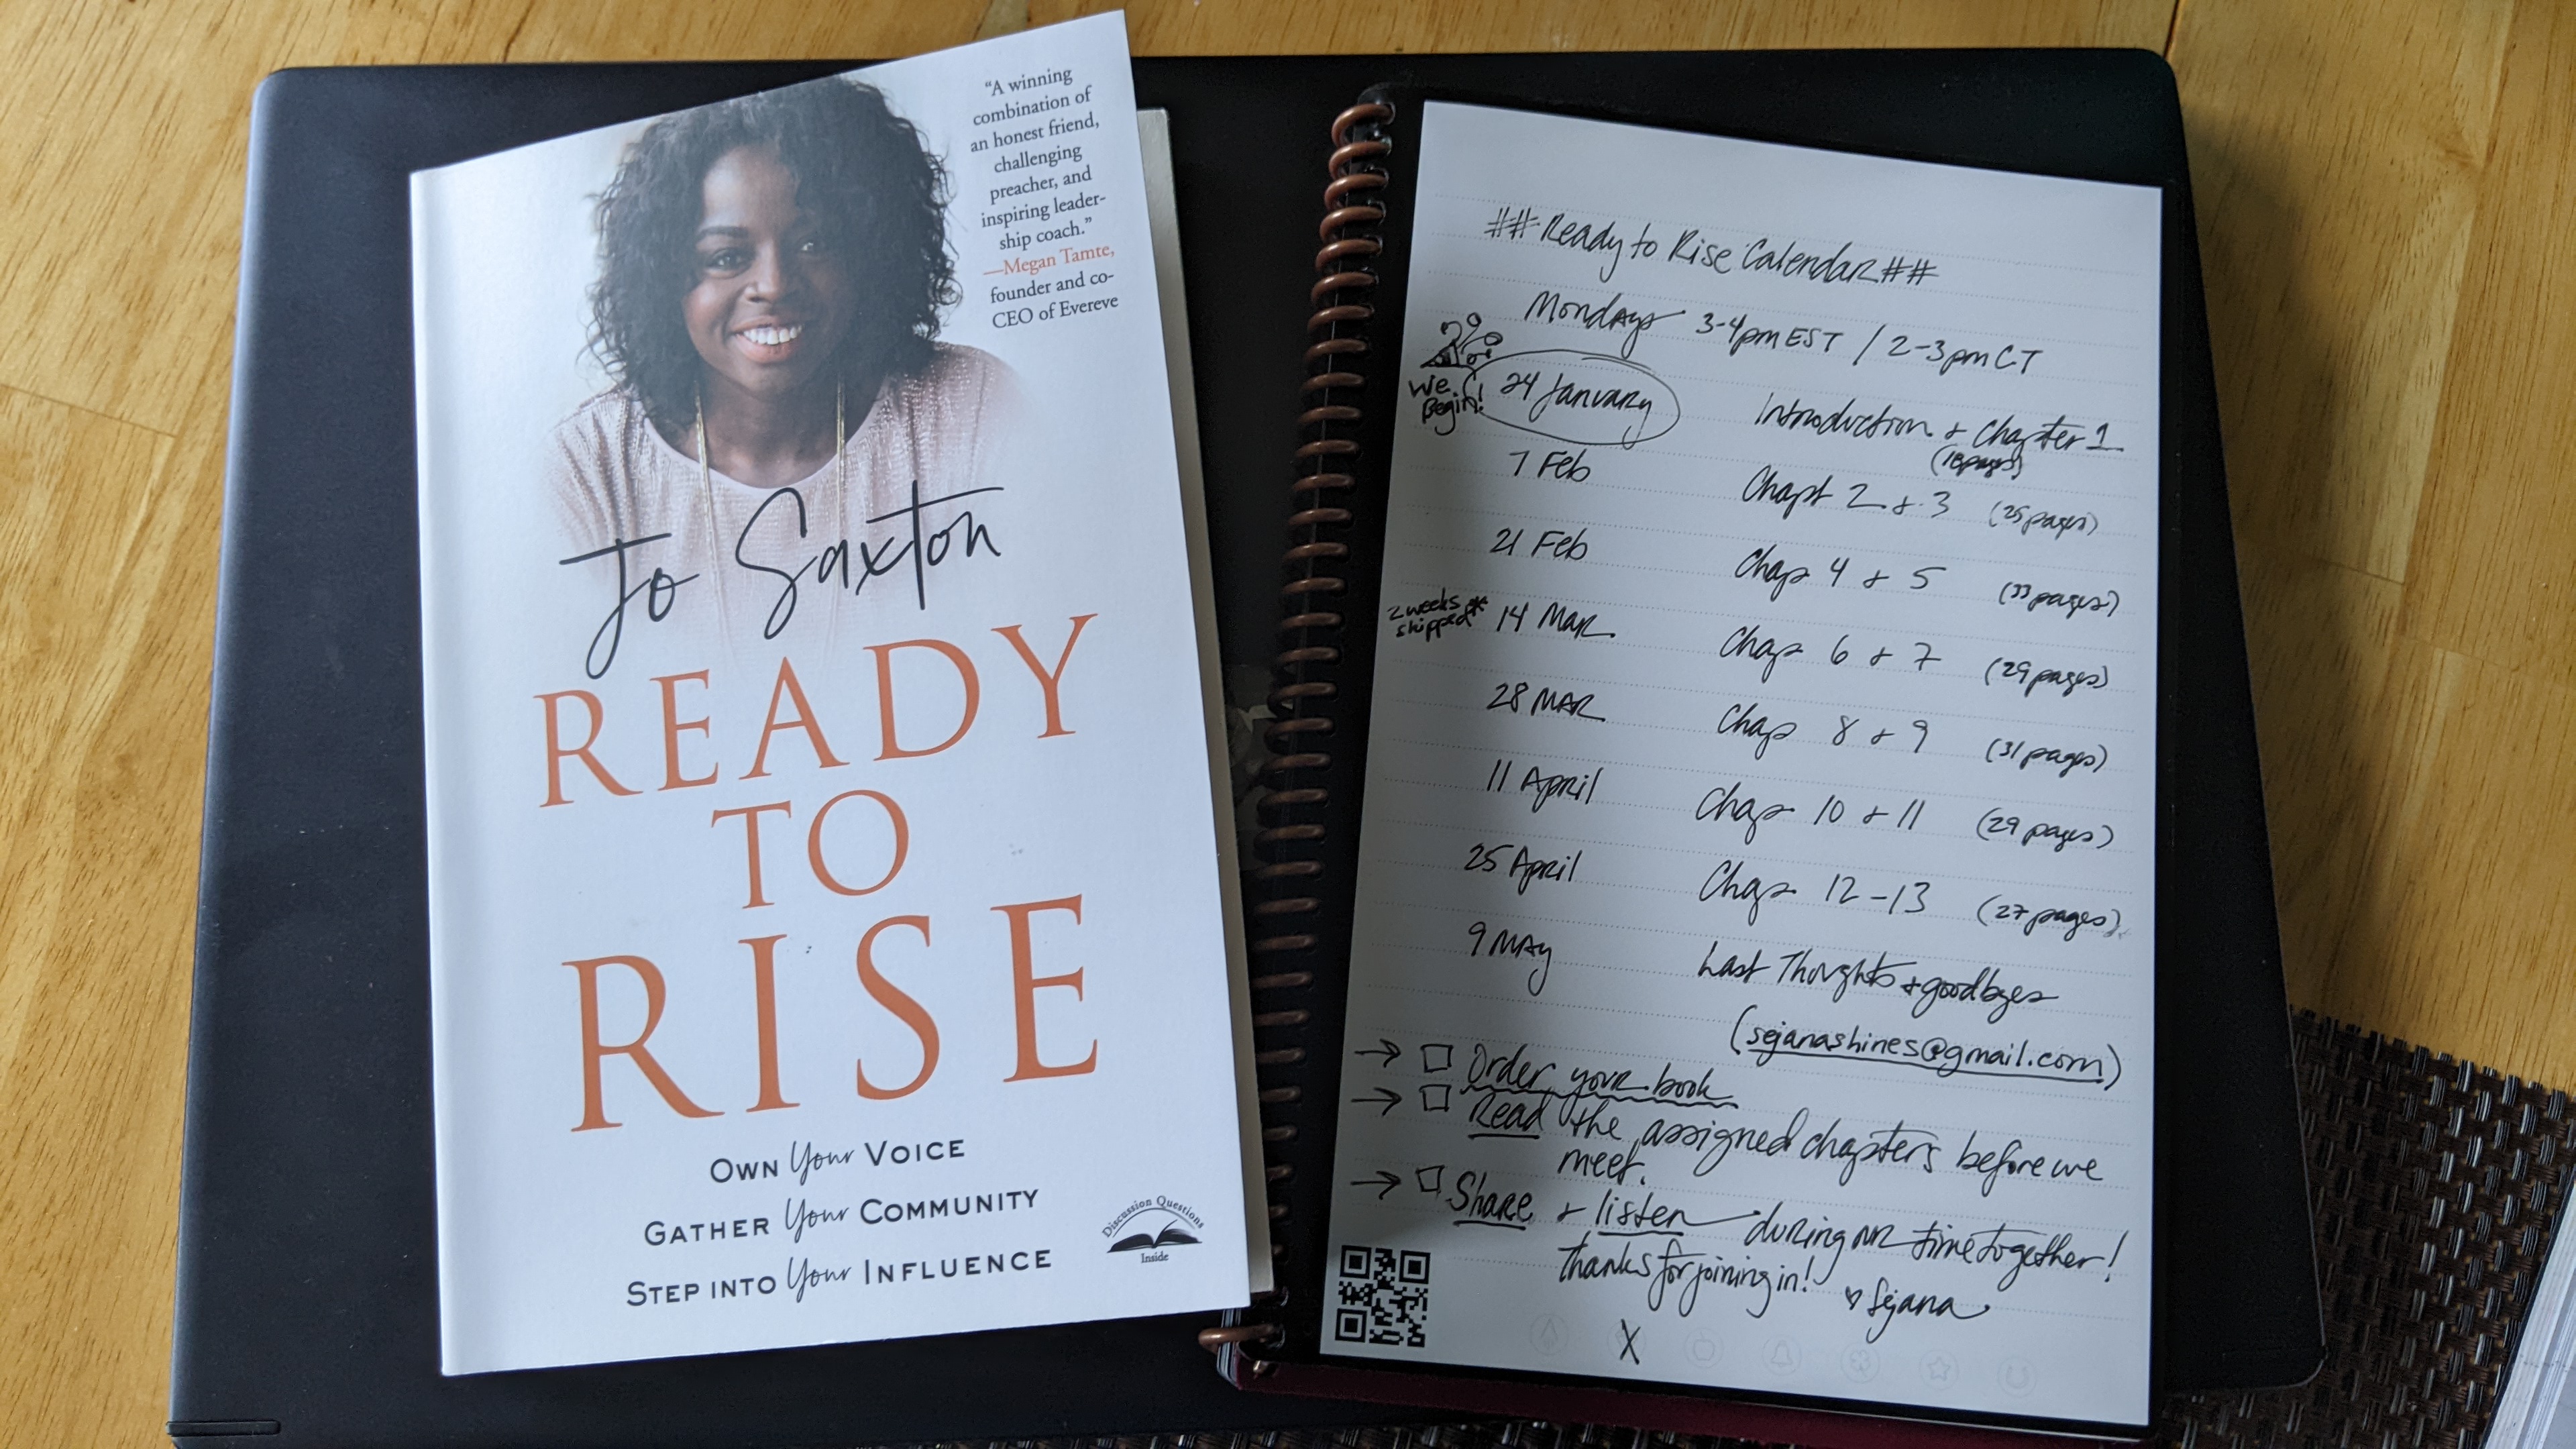 “A winning
combination of
an honest friend,
challenging
preacher, and
inspiring leader-
ship coach.”
—Megan Tamte,
founder and co-
CEO of Evereve
Jo Saxton
READY
TO
RISE
OWN Your VOICE
GATHER Your COMMUNITY
STEP INTO Your INFLUENCE
Discussion Questions
Inside
##Ready to Rise Calendar##
Mondays 3-4pm EST / 2-3pm CT
We Begin! 24 January Introduction & Chapter 1
(18pages)
7 Feb Chapt 2 & 3 (25 pages)
21 Feb Chap 4 & 5 (33 pages)
2 weeks skipped* *14 Mar Chap 6 & 7 (29 pages)
28 MAR Chap 8 & 9 (31 pages)
11 April Chap 10 & 11 (29 pages)
25 April Chap 12-13 (27 pages)
9 May Last Thoughts & goodbyes
(sejanashines@gmail.com)
→ □ Order your book
→ □ Read the assigned chapters before we
meet.
→ □ Share & listen during our time together!
Thanks for joining in! ♡ Sejana
X